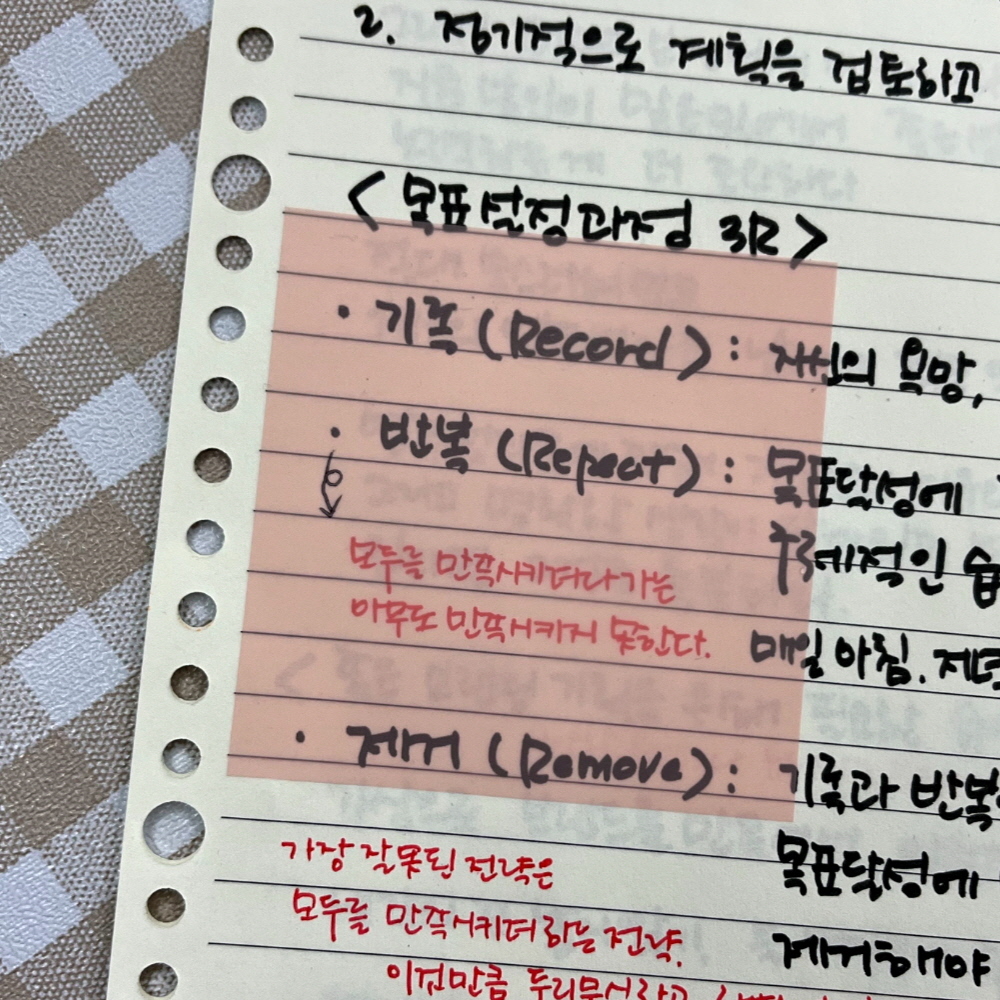 2. 정기적으로 계획을 검토하고
< 목표설정과정 3R >
· 기록 (Record) : 자신의 욕망,
· 반복 (Repeat) : 목표달성에
구체적인 습
모두를 만족시키려다가는
아무도 만족시키지 못한다.
매일 아침. 저녁
· 제거 (Remove) : 기록과 반복
가장 잘못된 전략은
목표달성에
모두를 만족시키려 하는 전략.
제거해야
이것만큼